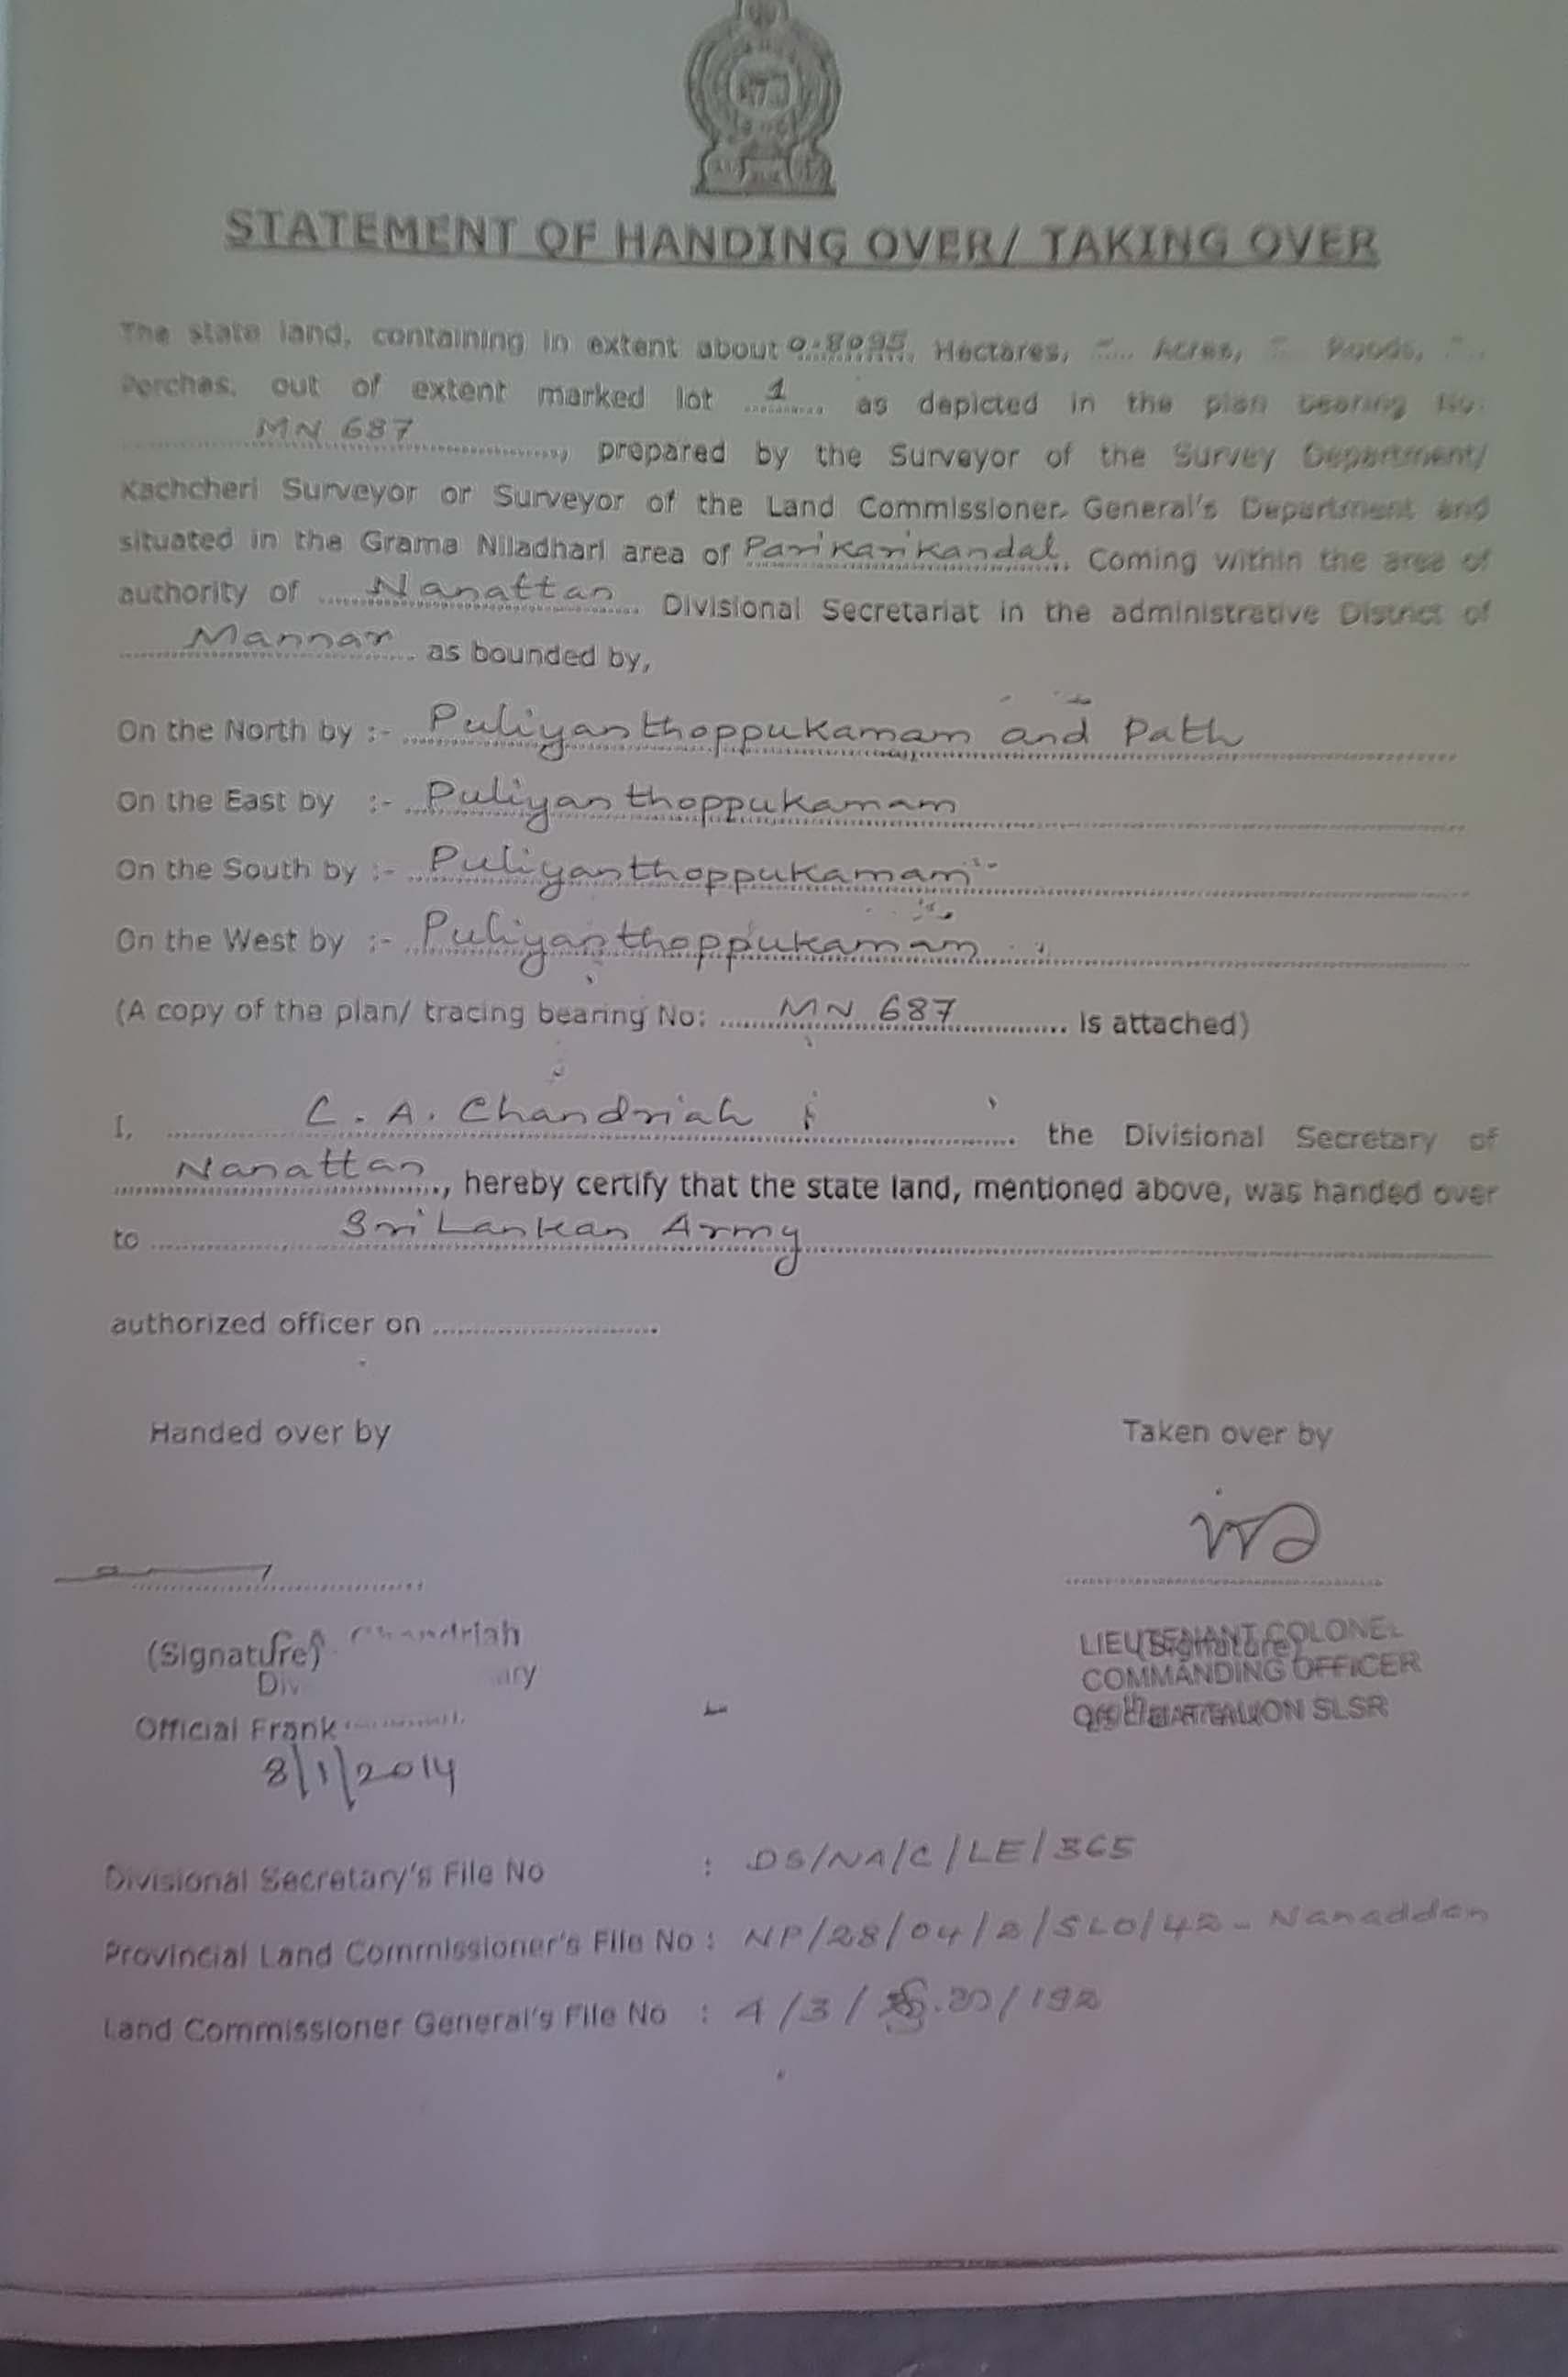 STATEMENT OF HANDING OVER/ TAKING OVER
The state land, containing in extent about 0.8095 Hectares, Acres, Roods,
Perches, out of extent marked lot 1 as depicted in the plan bearing No.
MN 687, prepared by the Surveyor of the Survey Department/
Kachcheri Surveyor or Surveyor of the Land Commissioner General's Department and
situated in the Grama Niladhari area of Parikarikandal. Coming within the area of
authority of Nanattan Divisional Secretariat in the administrative District of
Mannar as bounded by,
On the North by :- Puliyanthoppukamam and Path
On the East by :- Puliyanthoppukamam
On the South by :- Puliyanthoppukamam
On the West by :- Puliyanthoppukamam
(A copy of the plan/ tracing bearing No: MN 687 is attached)
I, C. A. Chandriah the Divisional Secretary of
Nanattan, hereby certify that the state land, mentioned above, was handed over
to Sri Lankan Army
authorized officer on
Handed over by Taken over by
(Signature) Chandriah
LIEUTENANT COLONEL
(Signature)
COMMANDING OFFICER
Official Frank
BATTALION SLSR
8/1/2014
Divisional Secretary's File No : DS/NA/C/LE/365
Provincial Land Commissioner's File No : NP/28/04/2/SLO/42 - Nanaddan
Land Commissioner General's File No : 4/3/ /192